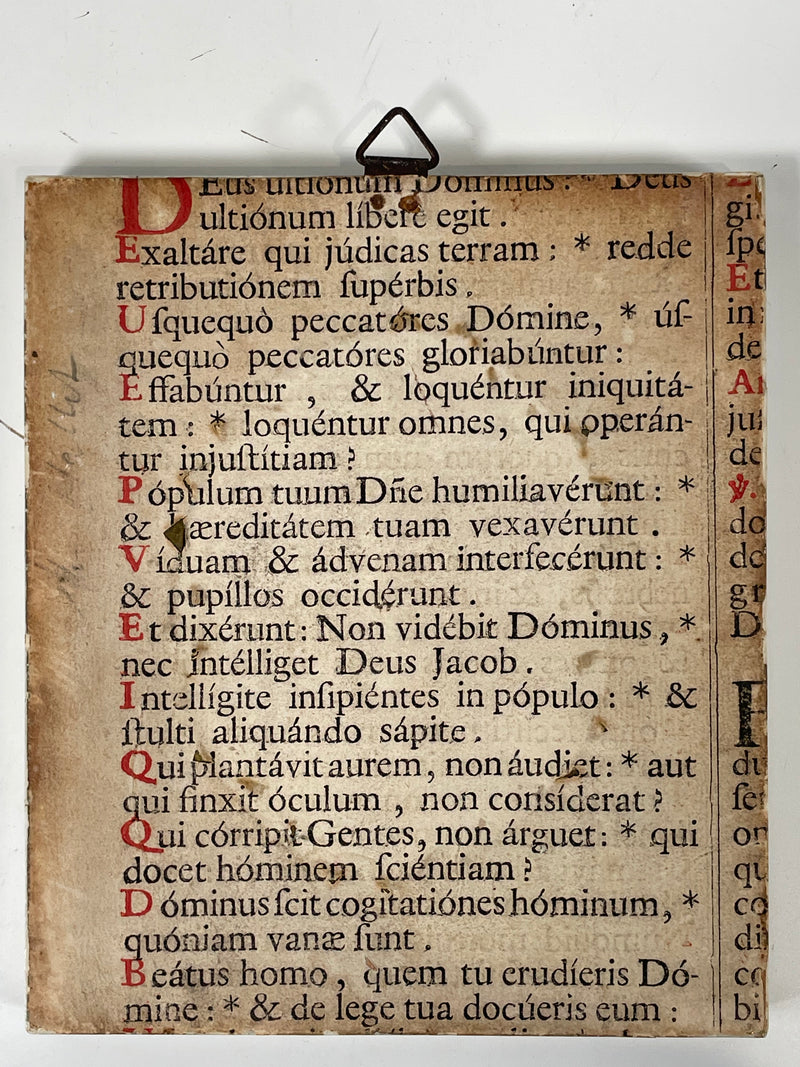 DEus ultiónum Dóminus: * Deus
ultiónum líberè egit.
Exaltáre qui júdicas terram: * redde
retributiónem ſupérbis.
Uſquequò peccatóres Dómine, * úſ-
quequò peccatóres gloriabúntur:
Effabúntur, & loquéntur iniquitá-
tem: * loquéntur omnes, qui operán-
tur injuſtítiam?
Pópulum tuum Dñe humiliavérunt: *
& hæreditátem tuam vexavérunt.
Víduam & ádvenam interfecérunt: *
& pupíllos occidérunt.
Et dixérunt: Non vidébit Dóminus, *
nec intélliget Deus Jacob.
Intellígite inſipiéntes in pópulo: * &
ſtulti aliquándo sápite.
Qui plantávit aurem, non áudiet: * aut
qui finxit óculum, non consíderat?
Qui córripit Gentes, non árguet: * qui
docet hóminem ſciéntiam?
Dóminus ſcit cogitatiónes hóminum, *
quóniam vanæ ſunt.
Beátus homo, quem tu erudíeris Dó-
mine: * & de lege tua docúeris eum:
gi
ſpe
Et
in
de
de
℣.
do
de
gr
D
du
or
qu
co
di
co
bi